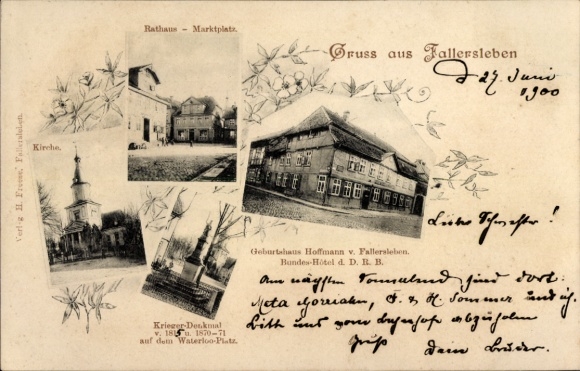 Rathaus - Marktplatz.
Gruss aus Fallersleben
d 27. Juni
1900
Kirche.
Verlag H. Freese, Fallersleben.
Liebe Schwester!
Geburtshaus Hoffmann v. Fallersleben.
Bundes-Hôtel d. D. R. B.
Krieger-Denkmal
v. 1815 u. 1870-71
auf dem Waterloo-Platz.
Am nächsten Sonnabend sind dort
Meta & H. Sommer und ich
Bitte uns vom Bahnhof abzuholen
Gruß Dein Bruder.